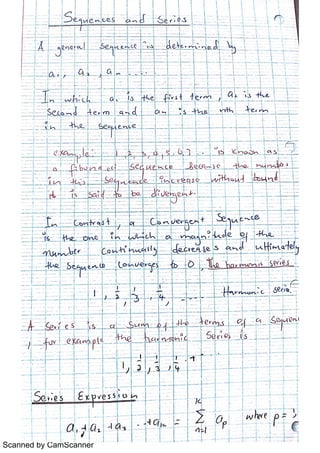 Sequences and Series
A general sequence is determined by
a₁, a₂, aₙ ....
In which a₁ is the first term, a₂ is the
second term and an is the nth term
in the sequence
example: 1, 2, 3, 4, 5, 6, 7 .. is known as
a sequence because the number
in this sequence increase without bound
it is said to be divergent
In contrast, a Convergent Sequence
is the one in which a magnitude of the
number continually decreases and ultimately
the sequence converges to 0, the harmonic series
1, 1/2, 1/3, 1/4, .... Harmonic series
A Series is a sum of the terms of a Sequen
, for example the harmonic Series is
1, 1/2, 1/3, 1/4 .+
Series Expression
a₁ + a₂ + a₃ ... + aₙ = K Σ n=1 aₚ where p =
Scanned by CamScanner